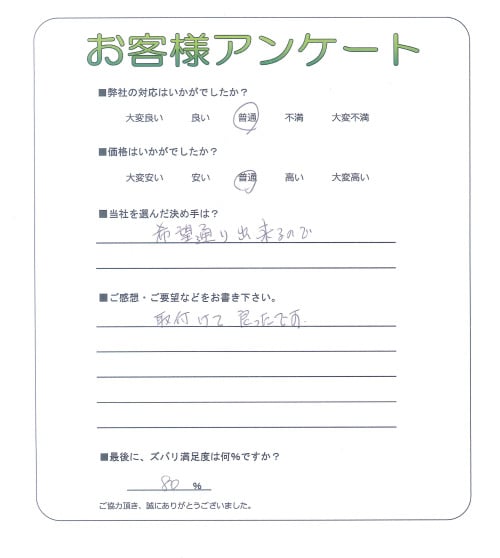 お客様アンケート
■弊社の対応はいかがでしたか？
大変良い 良い 普通 不満 大変不満
■価格はいかがでしたか？
大変安い 安い 普通 高い 大変高い
■当社を選んだ決め手は？
希望通り出来るので
■ご感想・ご要望などをお書き下さい。
取付けて良かったです.
■最後に、ズバリ満足度は何％ですか？
80 ％
ご協力頂き、誠にありがとうございました。